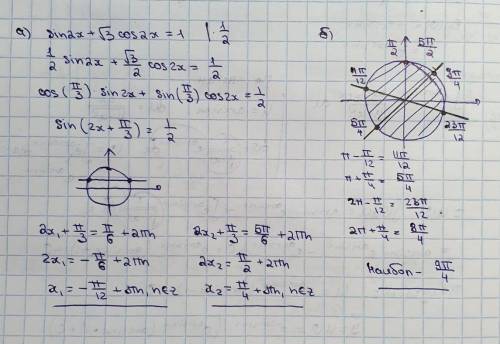 а) sin2x + √3 cos2x = 1 |·1/2
1/2 sin2x + √3/2 cos2x = 1/2
cos(π/3) sin2x + sin(π/3) cos2x = 1/2
sin(2x + π/3) = 1/2
2x₁ + π/3 = π/6 + 2πn
2x₁ = -π/6 + 2πn
x₁ = -π/12 + πn, n∈z
2x₂ + π/3 = 5π/6 + 2πn
2x₂ = π/2 + 2πn
x₂ = π/4 + πn, n∈z
б)
π/2 5π/2
11π/12 9π/4
5π/4 23π/12
π - π/12 = 11π/12
π + π/4 = 5π/4
2π - π/12 = 23π/12
2π + π/4 = 9π/4
наибол - 9π/4